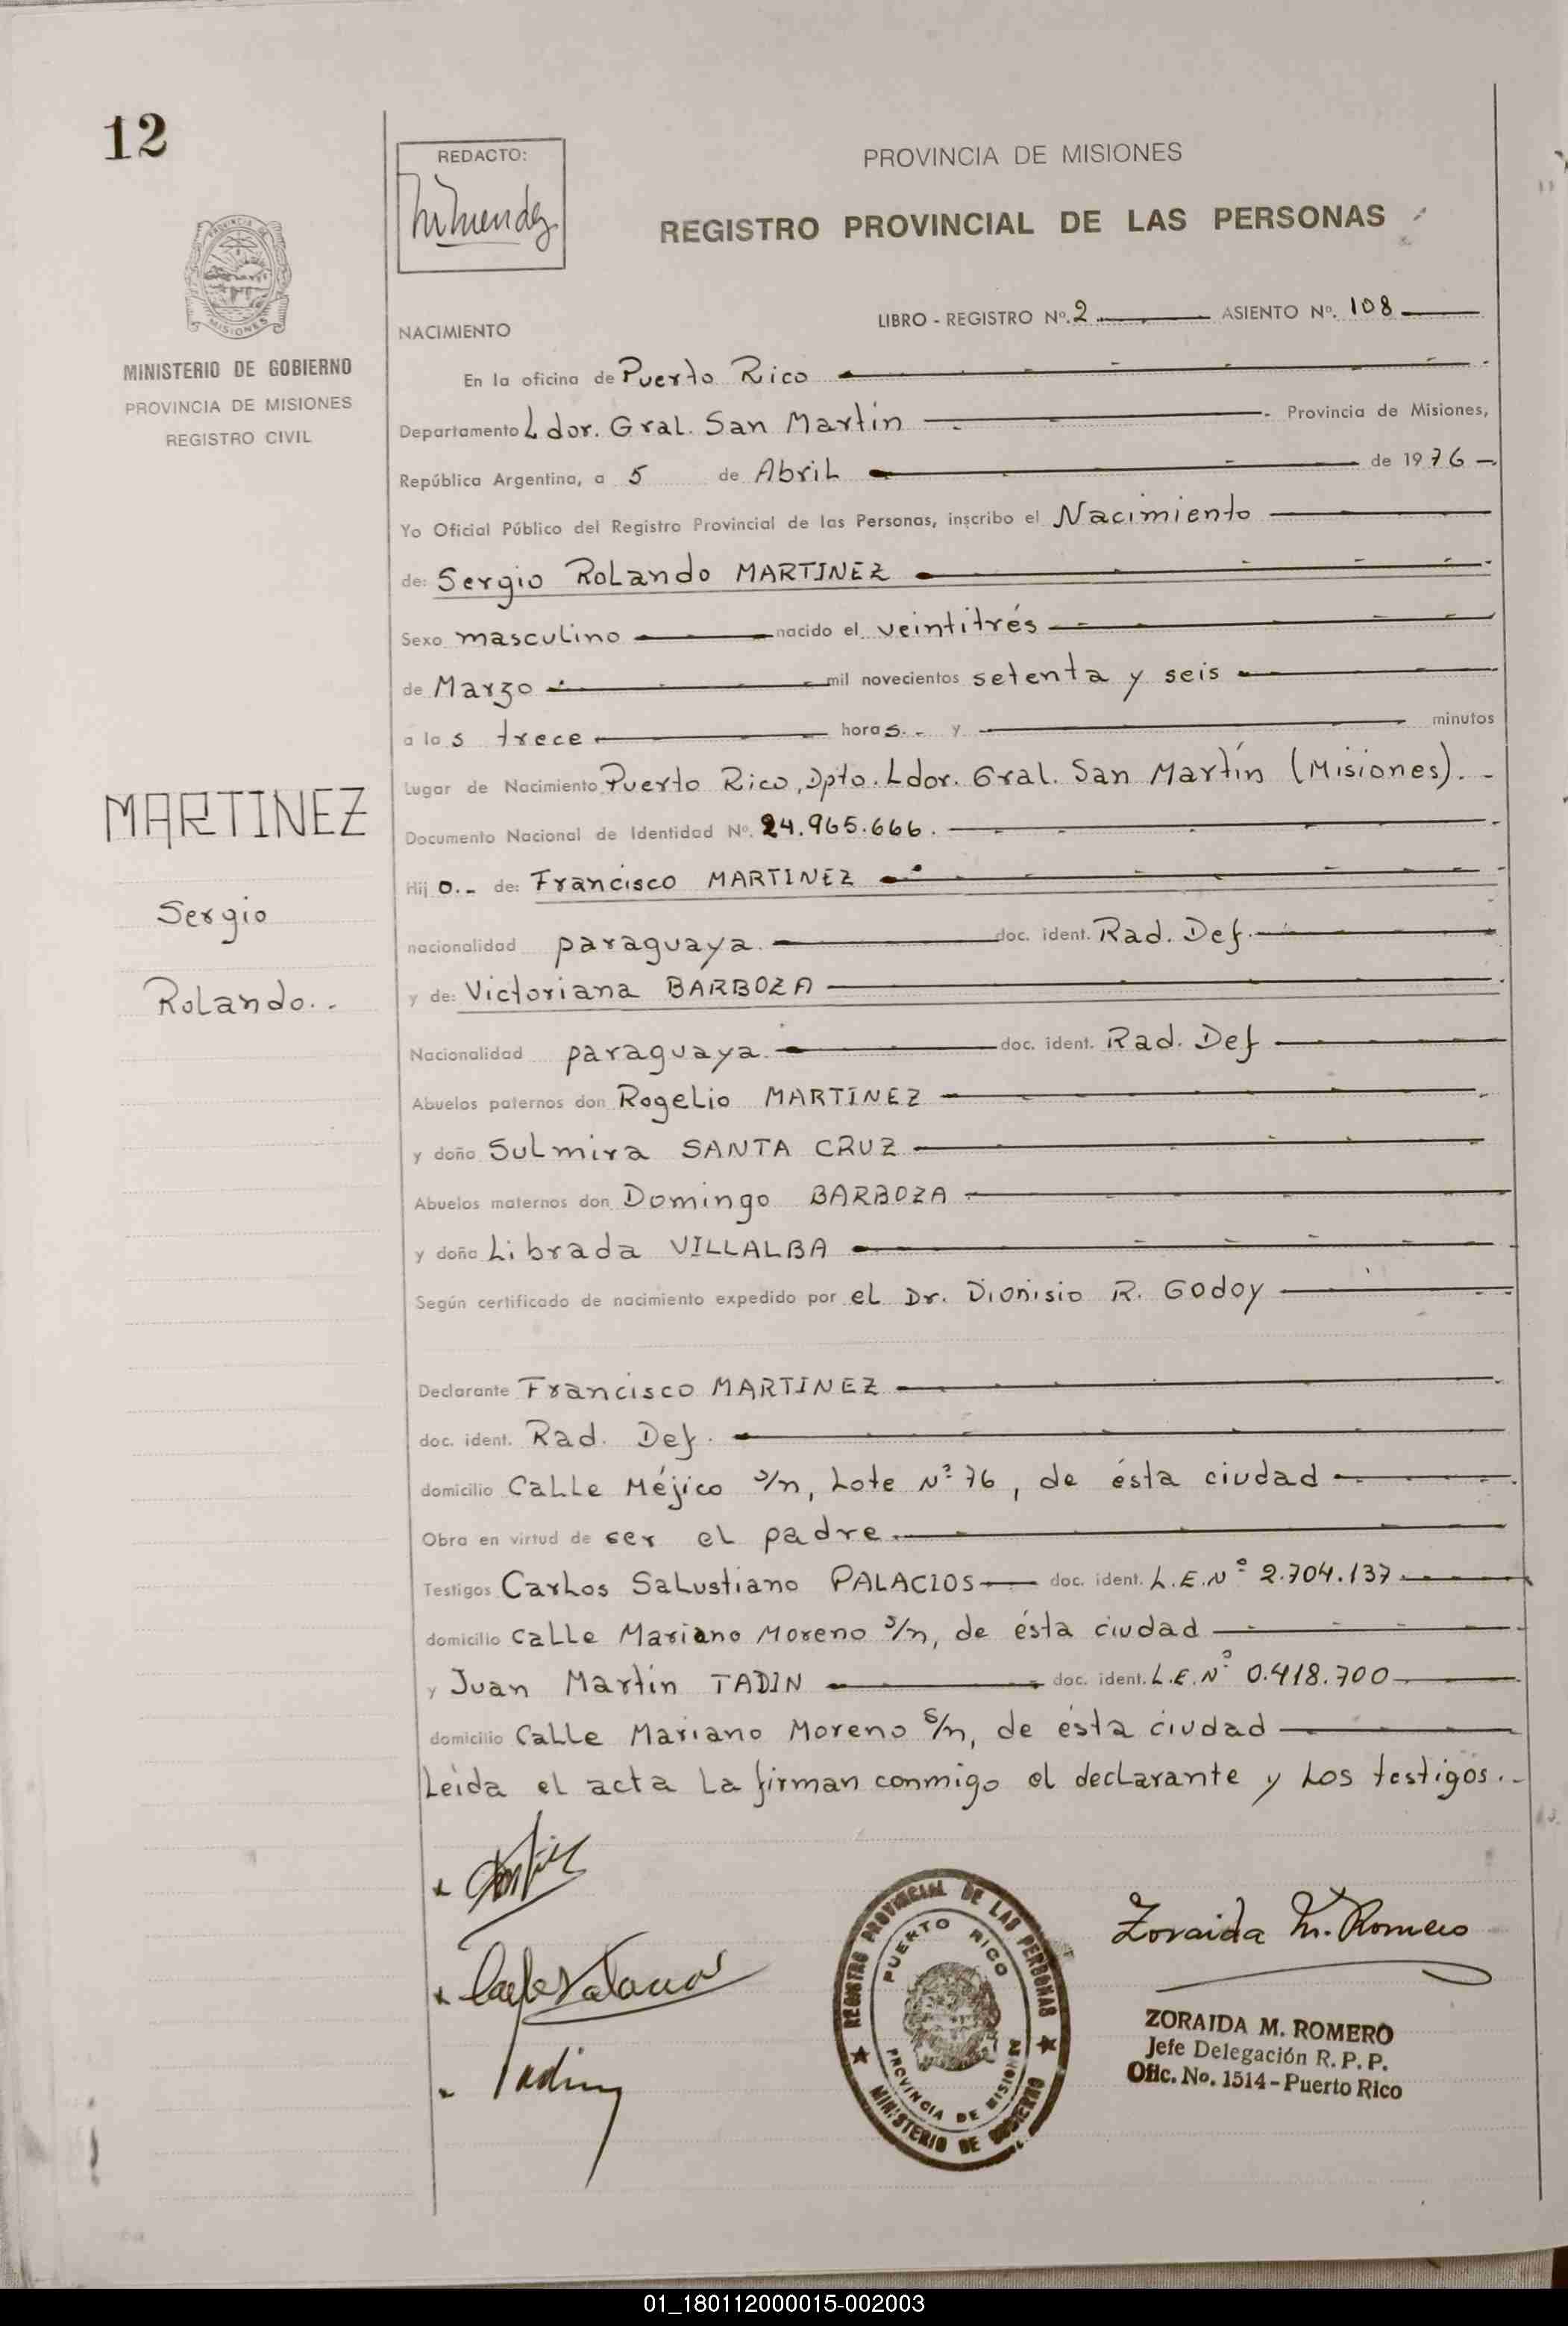 12
REDACTO:
PROVINCIA DE MISIONES
REGISTRO PROVINCIAL DE LAS PERSONAS
MISIONES
MINISTERIO DE GOBIERNO
PROVINCIA DE MISIONES
REGISTRO CIVIL
LIBRO - REGISTRO Nº. 2 ASIENTO Nº. 108
NACIMIENTO
En la oficina de Puerto Rico
Departamento Ldor. Gral. San Martín Provincia de Misiones,
República Argentina, a 5 de Abril de 1976
Yo Oficial Público del Registro Provincial de las Personas, inscribo el Nacimiento
de: Sergio Rolando MARTINEZ
Sexo masculino nacido el veintitrés
de Marzo mil novecientos setenta y seis
a las trece horas.- y minutos
Lugar de Nacimiento Puerto Rico, Dpto. Ldor. Gral. San Martín (Misiones).-
Documento Nacional de Identidad Nº. 24.965.666.
Hijo.- de: Francisco MARTINEZ
nacionalidad paraguaya doc. ident. Rad. Def.
y de: Victoriana BARBOZA
Nacionalidad paraguaya doc. ident. Rad. Def
Abuelos paternos don Rogelio MARTINEZ
y doña Sulmira SANTA CRUZ
Abuelos maternos don Domingo BARBOZA
y doña Librada VILLALBA
Según certificado de nacimiento expedido por el Dr. Dionisio R. Godoy
Declarante Francisco MARTINEZ
doc. ident. Rad. Def.
domicilio Calle Méjico s/n, Lote Nº 76, de ésta ciudad
Obra en virtud de ser el padre
Testigos Carlos Salustiano PALACIOS doc. ident. L.E.Nº 2.704.137
domicilio Calle Mariano Moreno s/n, de ésta ciudad
y Juan Martín TADIN doc. ident. L.E.Nº 0.418.700
domicilio Calle Mariano Moreno s/n, de ésta ciudad
Leída el acta la firman conmigo el declarante y los testigos.-
MARTINEZ
Sergio
Rolando.-
Tadin
REGISTRO PROVINCIAL DE LAS PERSONAS
PUERTO RICO
PROVINCIA DE MISIONES
MINISTERIO DE GOBIERNO
Zoraida M. Romero
ZORAIDA M. ROMERO
Jefe Delegación R. P. P.
Ofic. No. 1514 - Puerto Rico
01_180112000015-002003